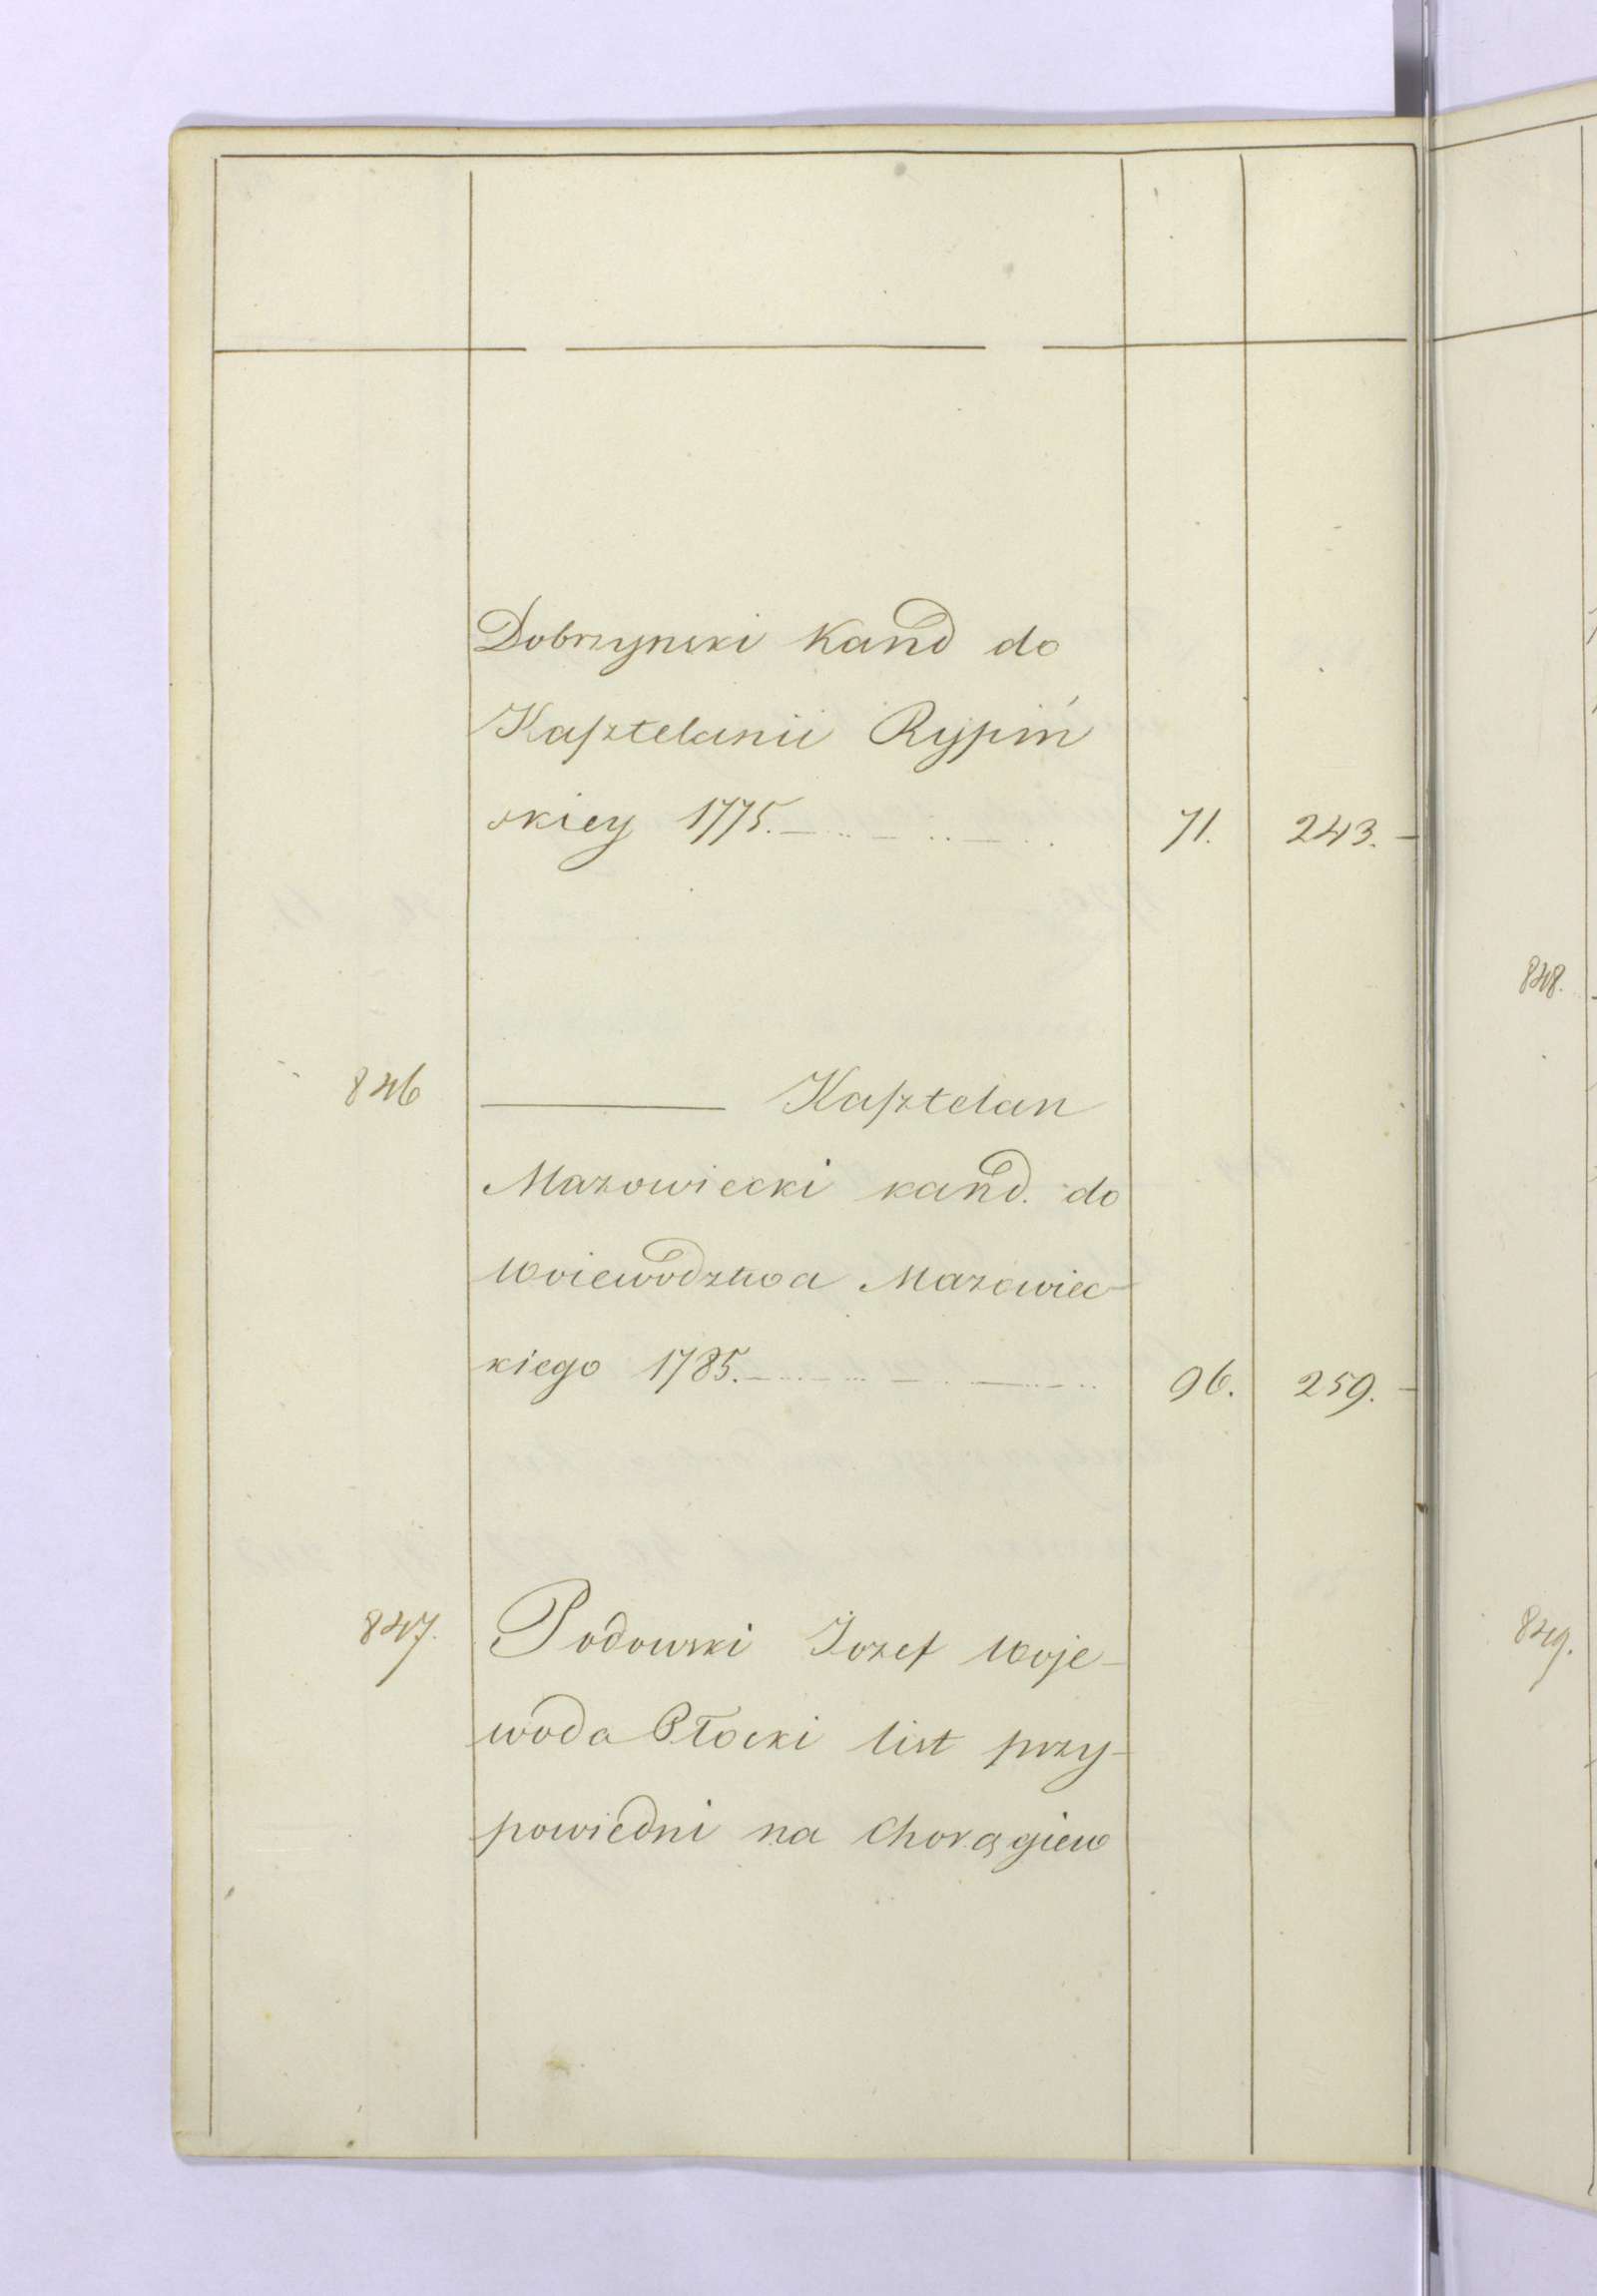 Dobrzynski Kand do
Kasztelanii Rypiń
skiey 1775. 71. 243.
846 Kasztelan
Mazowiecki kand. do
Woiewodztwa Mazowiec-
kiego 1785. 96. 259.
847. Podowski Jozef Woje-
woda Płocki list przy-
powiedni na Chorągiew
848.
849.